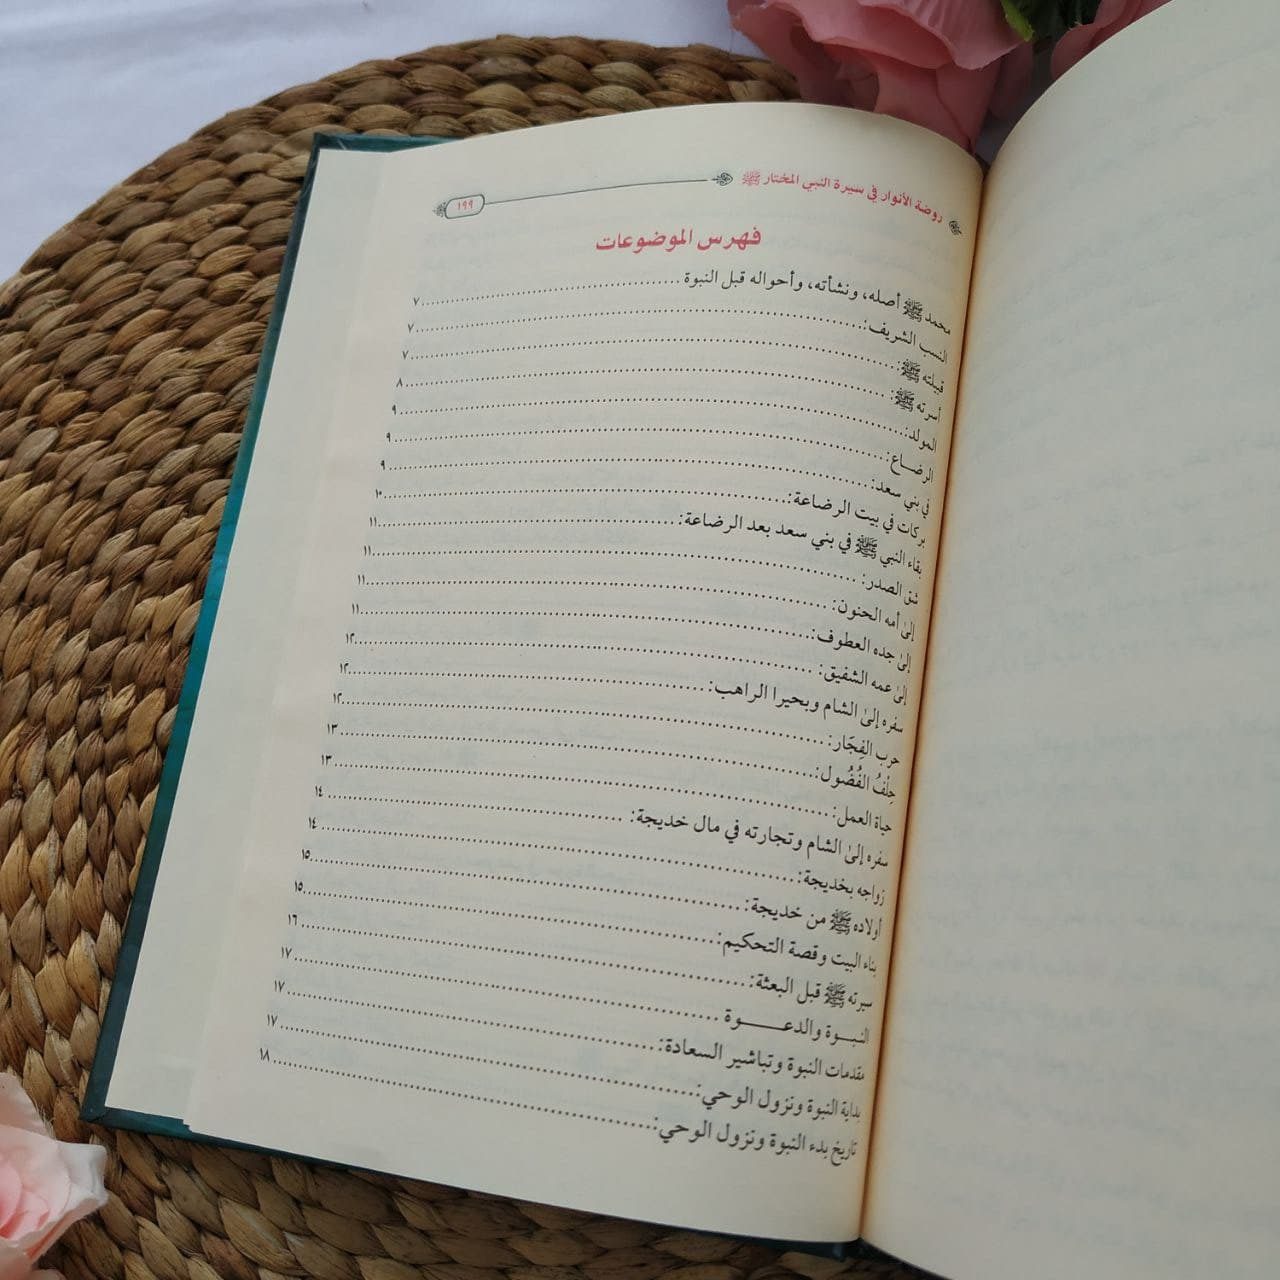 روضة الأنوار في سيرة النبي المختار ﷺ ١٩٩
فهرس الموضوعات
محمد ﷺ أصله، ونشأته، وأحواله قبل النبوة ........ ٧
النسب الشريف: ........ ٧
قبيلته ﷺ: ........ ٧
أسرته ﷺ: ........ ٨
المولد: ........ ٩
الرضاع: ........ ٩
في بني سعد: ........ ٩
بركات في بيت الرضاعة: ........ ١٠
بقاء النبي ﷺ في بني سعد بعد الرضاعة: ........ ١١
شق الصدر: ........ ١١
إلىٰ أمه الحنون: ........ ١١
إلىٰ جده العطوف: ........ ١١
إلىٰ عمه الشفيق: ........ ١٢
سفره إلىٰ الشام وبحيرا الراهب: ........ ١٢
حرب الفِجَار: ........ ١٢
حِلْفُ الفُضُول: ........ ١٣
حياة العمل: ........ ١٣
سفره إلىٰ الشام وتجارته في مال خديجة: ........ ١٤
زواجه بخديجة: ........ ١٤
أولاده ﷺ من خديجة: ........ ١٥
بناء البيت وقصة التحكيم: ........ ١٥
سيرته ﷺ قبل البعثة: ........ ١٦
النبـوة والدعـــوة ........ ١٧
مقدمات النبوة وتباشير السعادة: ........ ١٧
بداية النبوة ونزول الوحي: ........ ١٧
تاريخ بدء النبوة ونزول الوحي: ........ ١٨